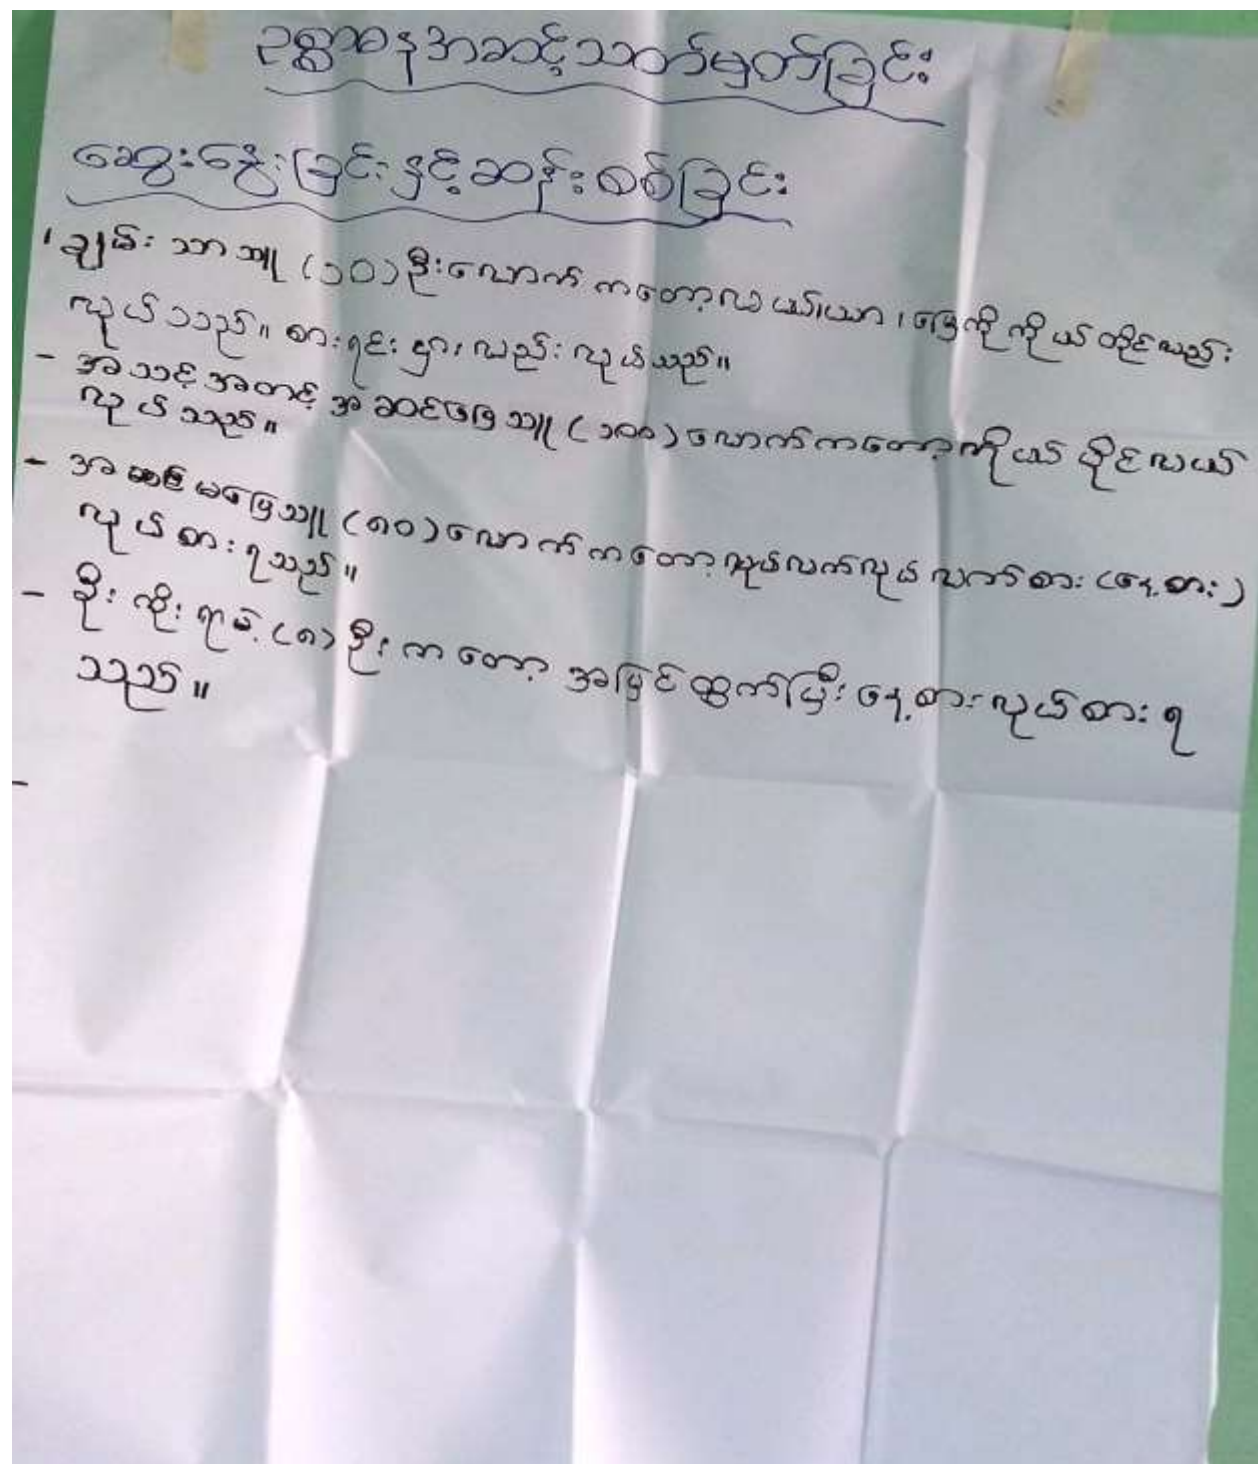 ဥစ္စာဓနအဆင့်သတ်မှတ်ခြင်း
ဆွေးနွေးခြင်းနှင့်ဆန်းစစ်ခြင်း
ချမ်းသာသူ (၁၀) ဦးလောက်ကတော့လယ်ယာ၊ မြေကိုကိုယ်တိုင်လည်း
လုယ်သည်။ စားရင်းငှား လည်းလုယ်သည်။
- အသင့်အတင့် အဆင်ပြေသူ (၁၀၀) လောက်ကတော့ကိုယ်ပိုင်လယ်
လုယ်သည်။
- အဆင်မပြေသူ (၈၀) လောက်ကတော့လုယ်လက်လုယ်လက်စား (နေ့စား)
လုယ်စားရသည်။
- ခိုးကိုးရာမဲ့ (၈) ဦးကတော့ အပြင်ထွက်ပြီးနေ့စားလုယ်စားရ
သည်။
-